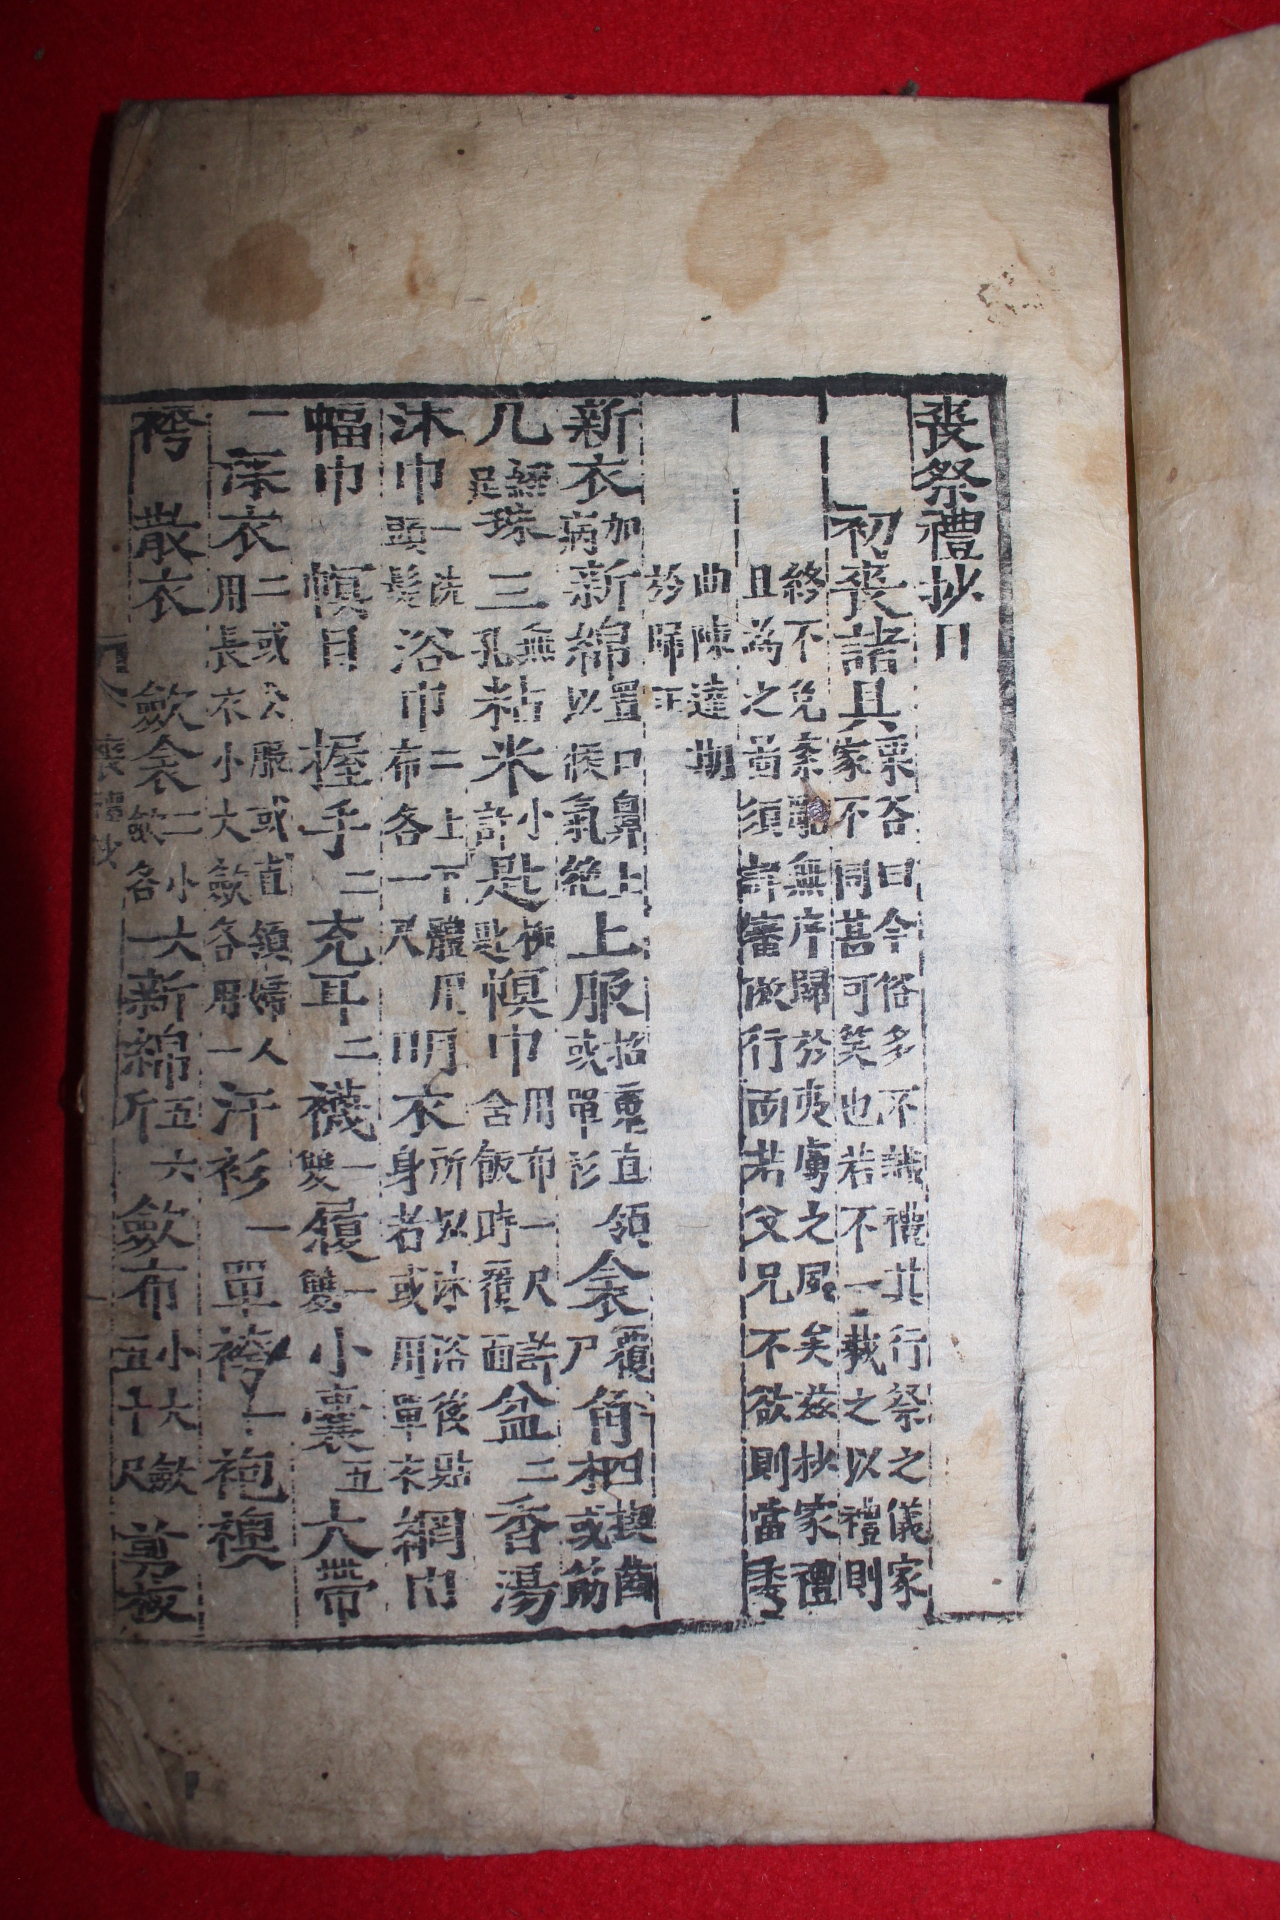 喪祭禮抄目
初喪諸具 栗谷曰今俗多不識禮其行祭之儀家
家不同甚可笑也若不一載之以禮則
終不免紊亂無序歸於夷虜之風矣茲抄家禮
且為之啚須詳審倣行而若父兄不欲則當委
曲陳達期
於歸正
新衣 加病 新綿 置口鼻上以候氣絶 上服 招魂直領或單衫 衾 覆尸 角柶 四 楔齒或筯
几 綴足 珠 三 無孔 粘米 小許 匙 極匙 幎巾 用布一尺許含飯時覆面 盆 二 香湯
沐巾 一 洗頭髮 浴巾 二 上下體用布各一尺 明衣 所以沐浴後貼身者或用單衣 網巾
幅巾 幎目 握手 二 充耳 二 襪 一雙 履 一雙 小囊 五 大帶
一 深衣 二 或公服或直領婦人用長衣小大斂各用一 汗衫 一 單袴 一 袍襖
袴 散衣 斂衾 二 小大斂各一 新綿 五六斤 斂布 小大斂五十尺
喪禮抄